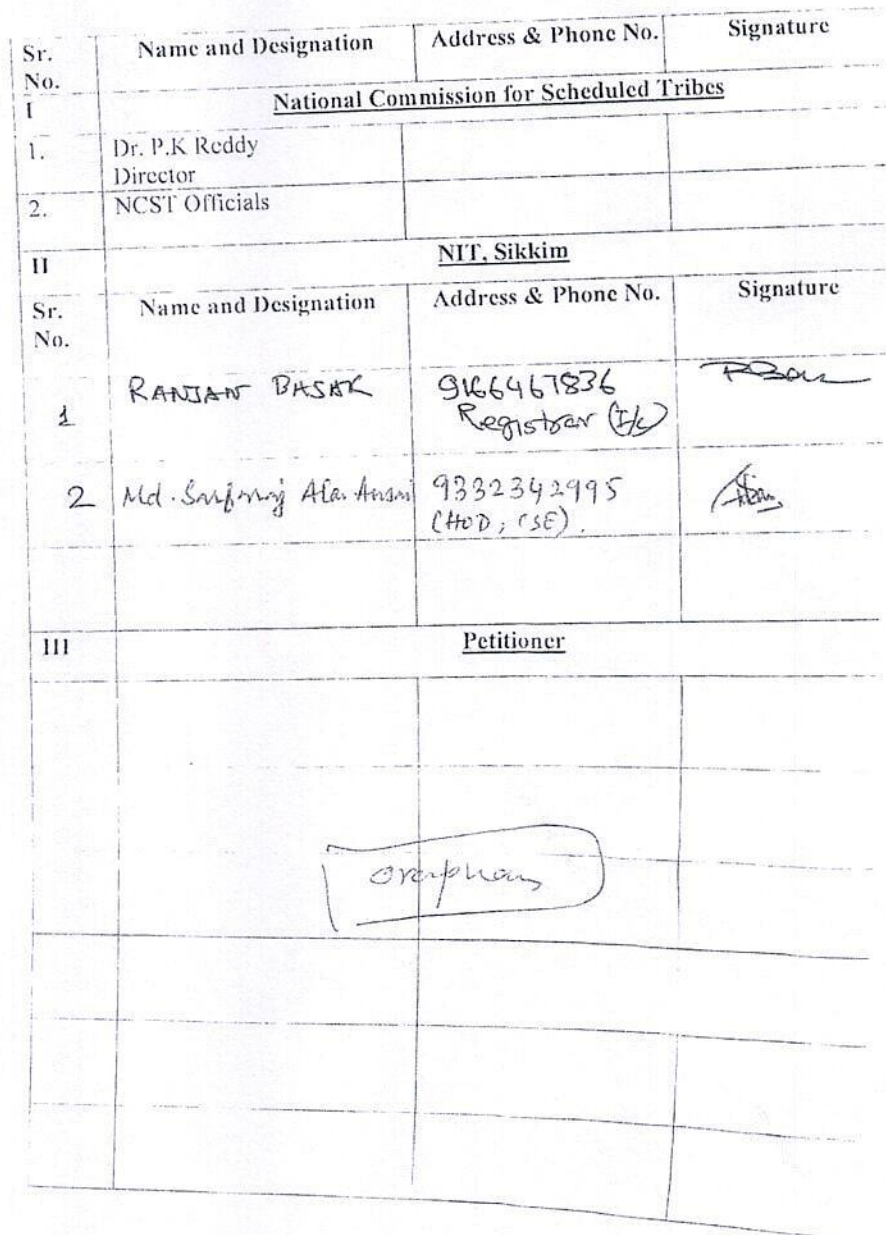 Sr. No. Name and Designation Address & Phone No. Signature
I National Commission for Scheduled Tribes
1. Dr. P.K Reddy
Director
2. NCST Officials
II NIT, Sikkim
Sr. No. Name and Designation Address & Phone No. Signature
1 RANJAN BASAK 9166467836
Registrar (I/c)
2 Md. 9332342995
(HOD, CSE).
III Petitioner